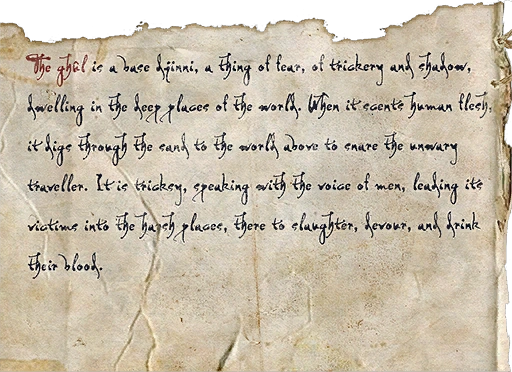 The ghûl is a base djinni, a thing of fear, of trickery and shadow,
dwelling in the deep places of the world. When it scents human flesh,
it digs through the sand to the world above to snare the unwary
traveller. It is tricksy, speaking with the voice of men, leading its
victims into the harsh places, there to slaughter, devour, and drink
their blood.